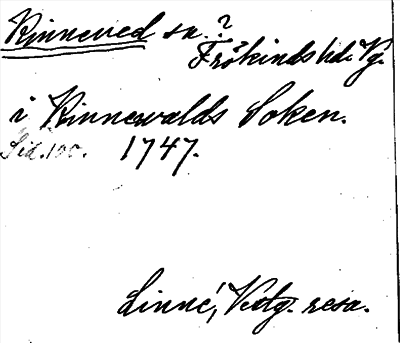 Kinneved sn. ?
Frökinds hd. Vg.
i Kinnewalds Soken.
Sid. 100. 1747.
Linné, Vestg. resa.